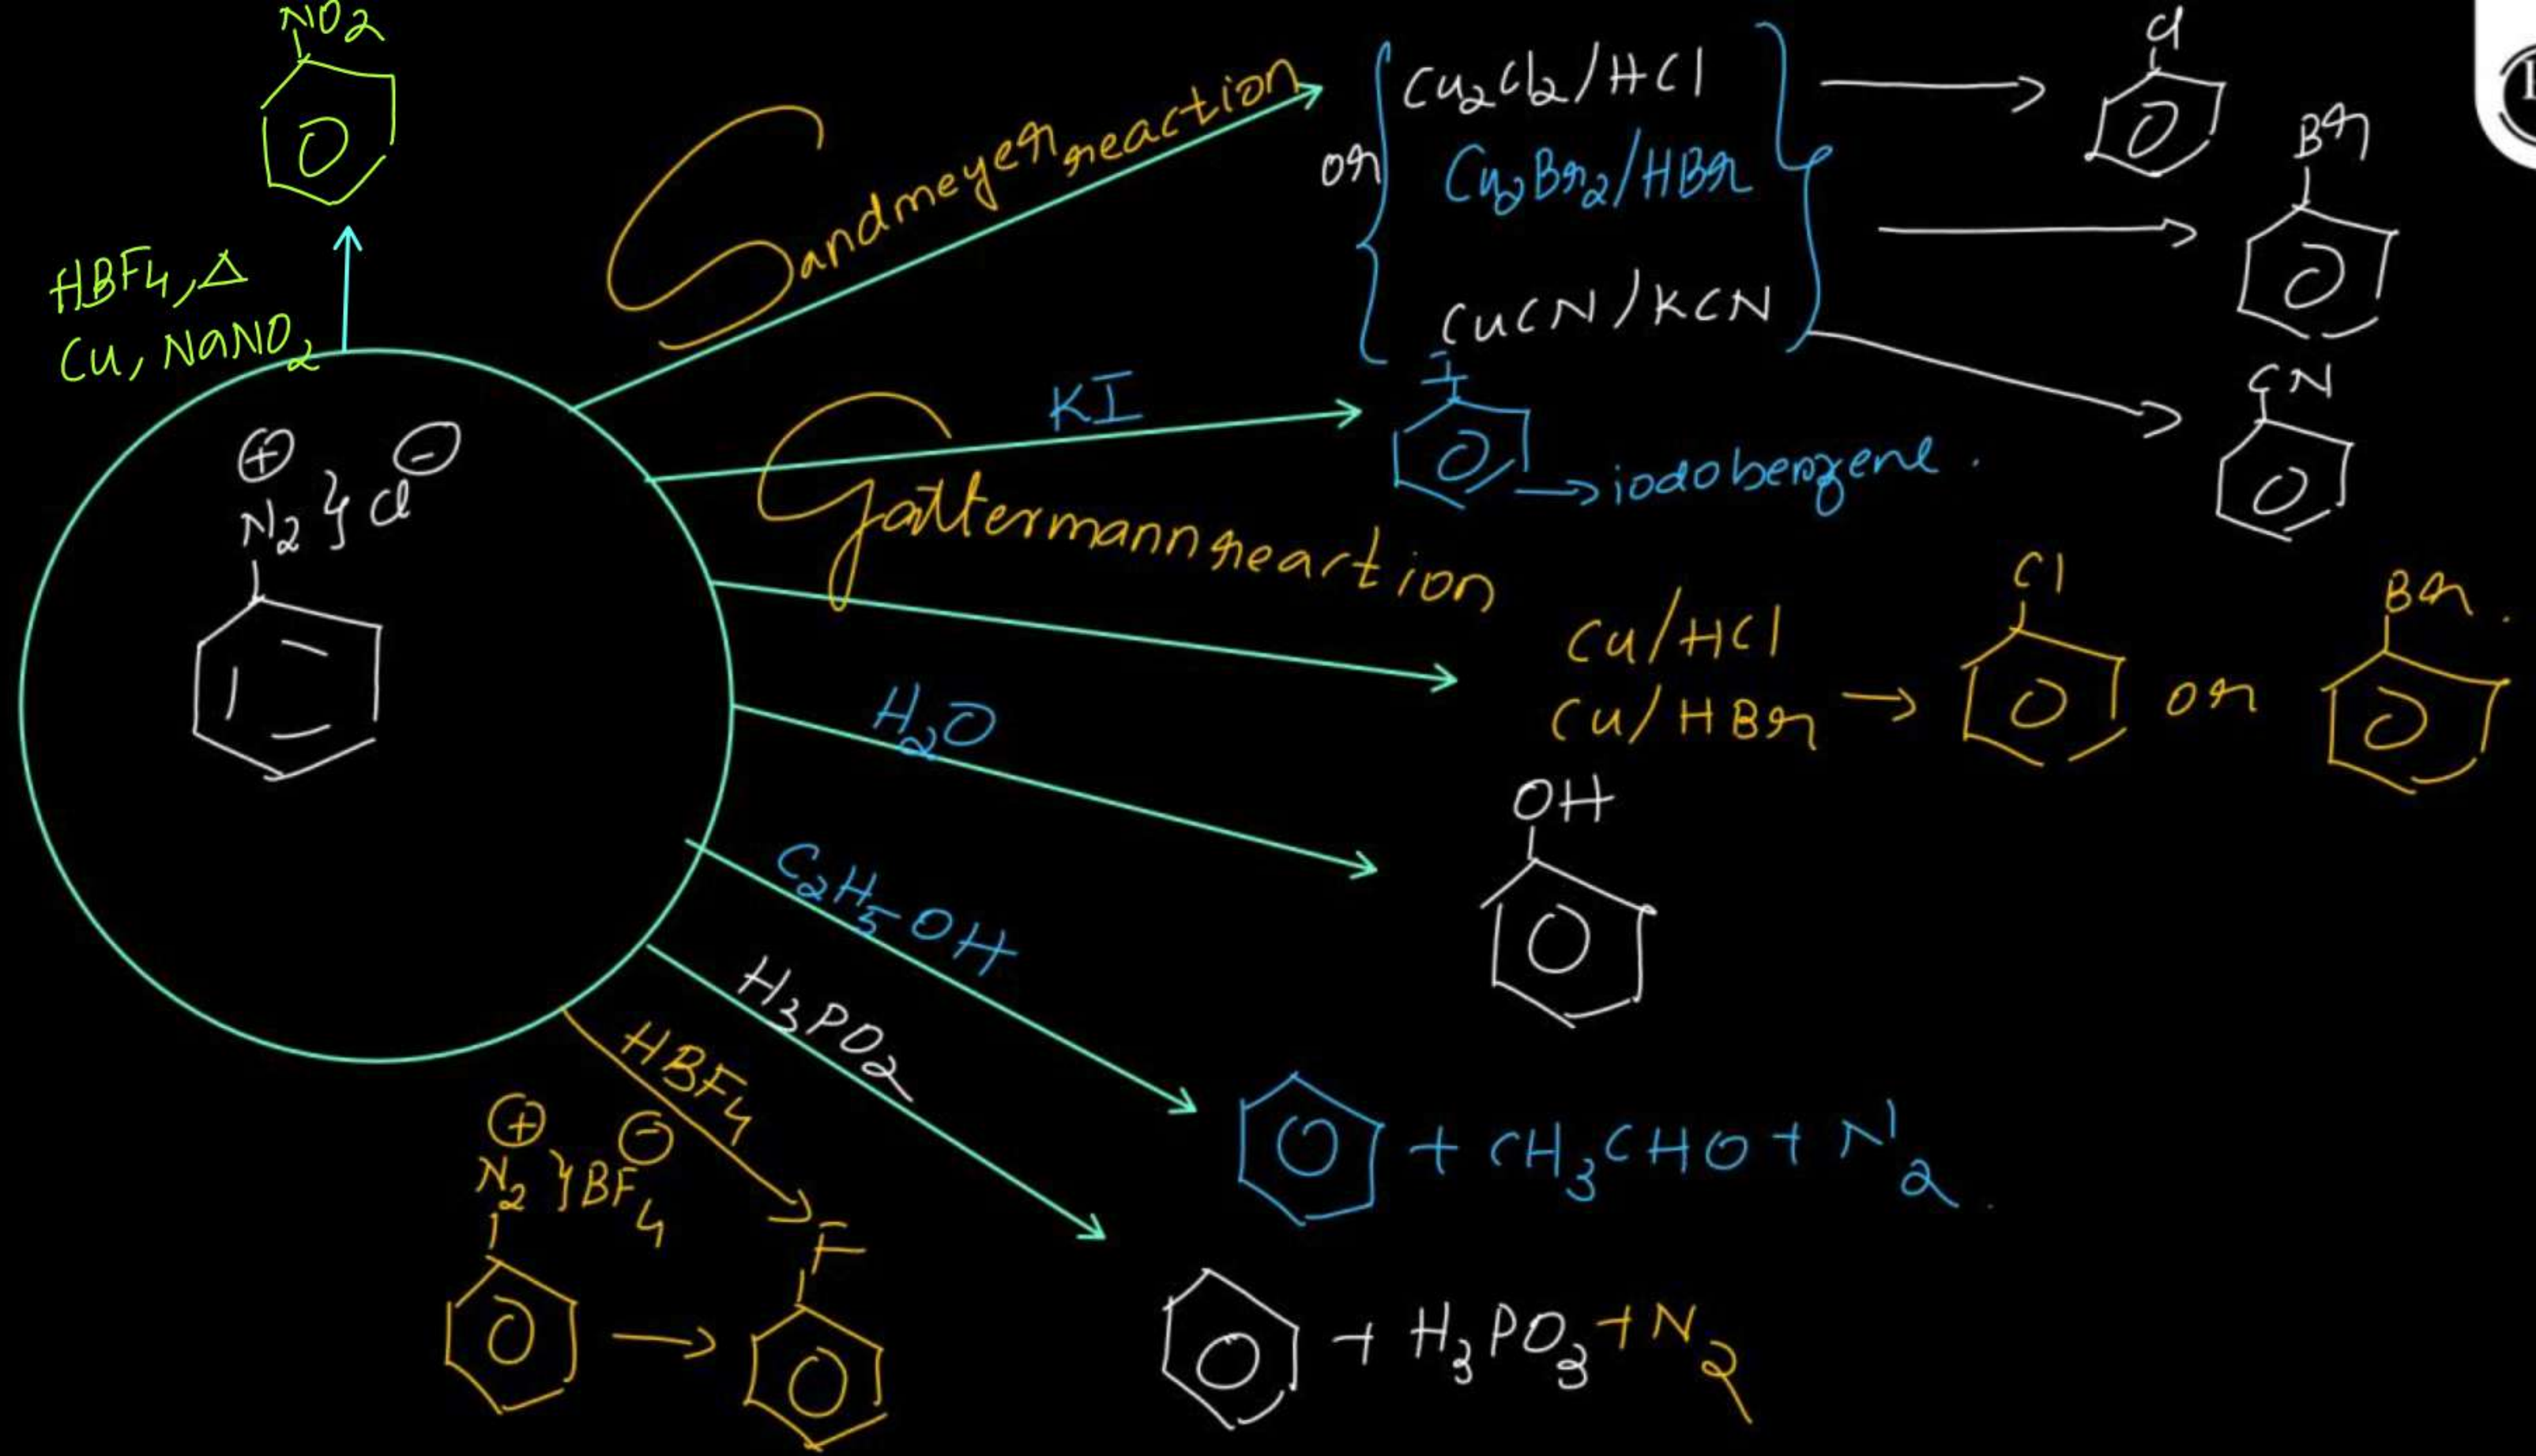 NO2
HBF4, Δ
Cu, NaNO2
⊕ ⊖
N2 } Cl
Sandmeyer reaction
or
Cu2Cl2/HCl
Cu2Br2/HBr
CuCN/KCN
Cl
Br
CN
KI
I
→ iodobenzene.
Gattermann reartion
Cu/HCl
Cu/HBr → or
Cl
Br.
H2O
OH
C2H5-OH
+ CH3CHO + N2.
H3PO2
+ H3PO3 + N2
HBF4
⊕ ⊖
N2 } BF4
→
F